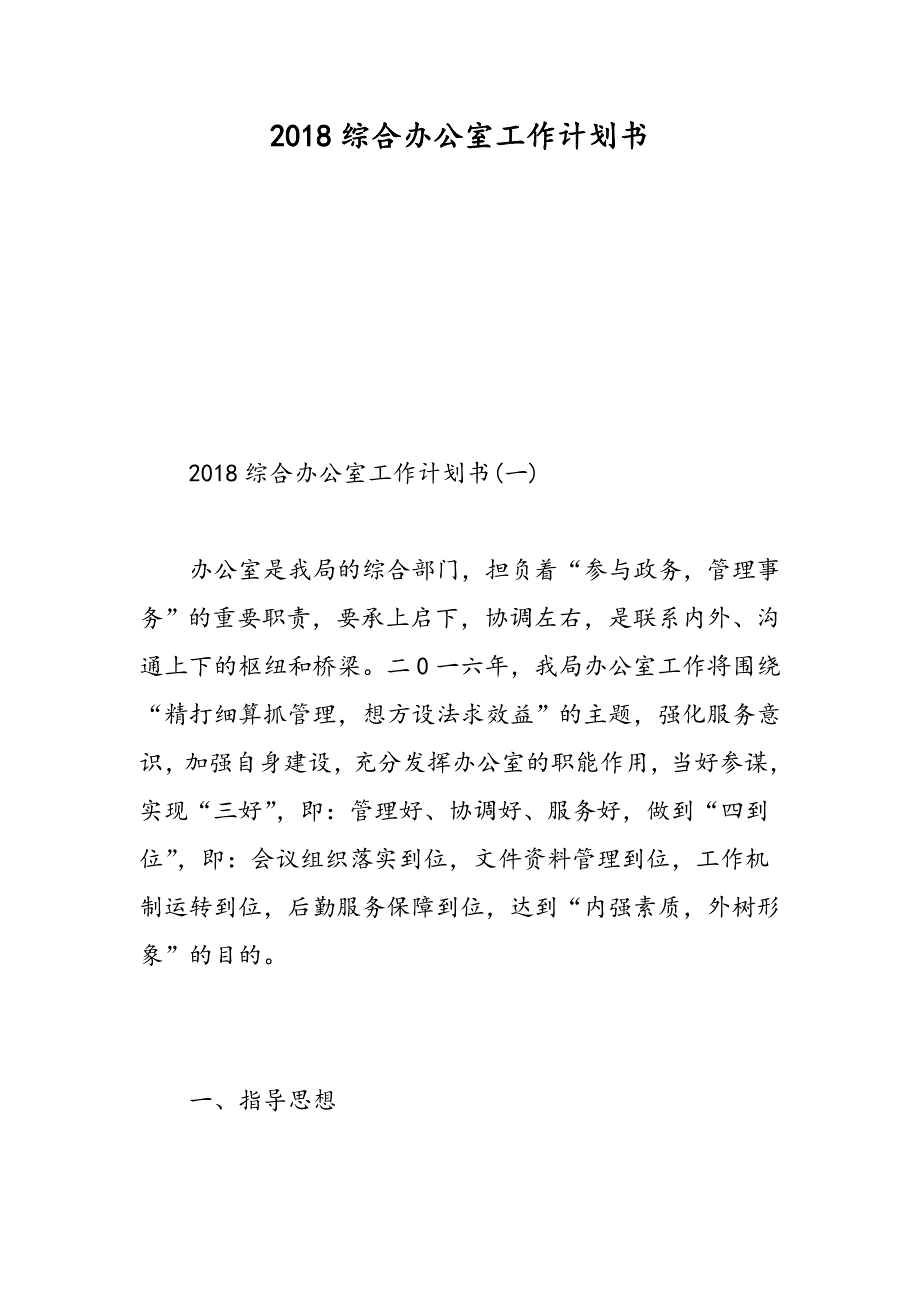 2018 综合办公室工作计划书
2018 综合办公室工作计划书(一)
办公室是我局的综合部门，担负着“参与政务，管理事
务”的重要职责，要承上启下，协调左右，是联系内外、沟
通上下的枢纽和桥梁。二0一六年，我局办公室工作将围绕
“精打细算抓管理，想方设法求效益”的主题，强化服务意
识，加强自身建设，充分发挥办公室的职能作用，当好参谋，
实现“三好”，即：管理好、协调好、服务好，做到“四到
位”，即：会议组织落实到位，文件资料管理到位，工作机
制运转到位，后勤服务保障到位，达到“内强素质，外树形
象”的目的。
一、指导思想